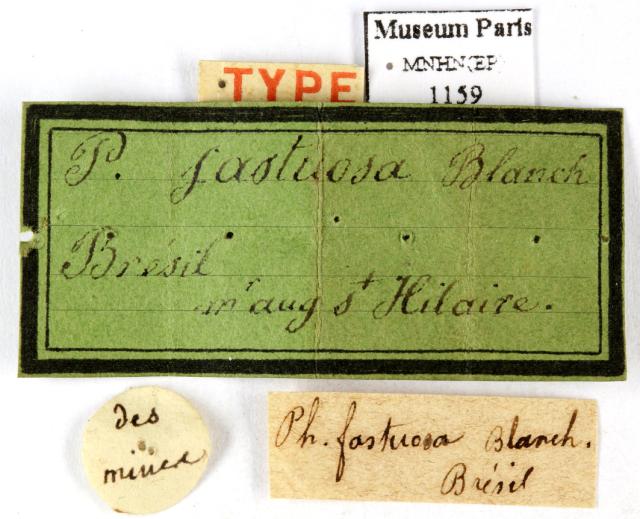 TYPE
Museum Paris
MNHN(EP)
1159
P. fastuosa Blanch
Brésil
mr aug st Hilaire.
des
mines
Ph. fastuosa Blanch.
Brésil